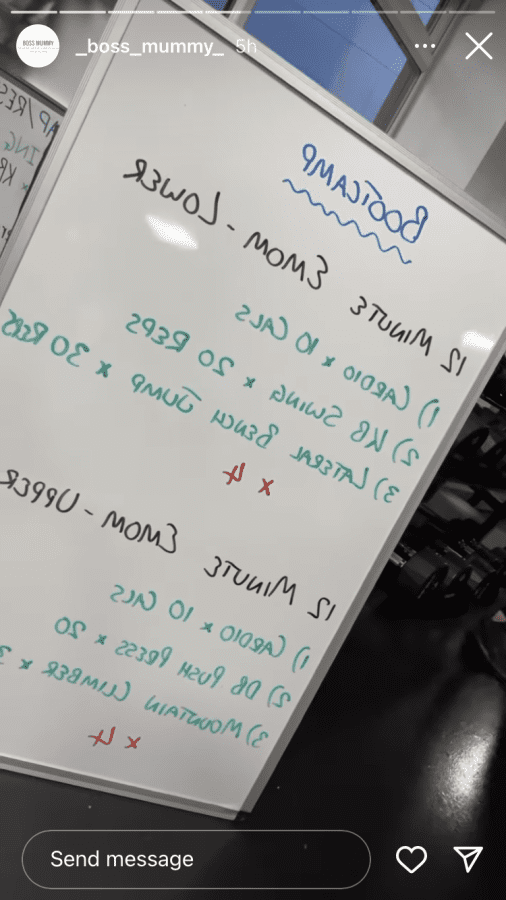 BOSS MUMMY
_boss_mummy_ 5h
BOOTCAMP
12 MINUTE EMOM - LOWER
1) CARDIO x 10 CALS
2) KB SWING x 20 REPS
3) LATERAL BENCH JUMP x 30 REPS
x 4
12 MINUTE EMOM - UPPER
1) CARDIO x 10 CALS
2) DB PUSH PRESS x 20
3) MOUNTAIN CLIMBER x
x 4
Send message